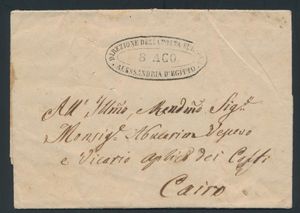 DIREZIONE DELLA POSTA EUROPEA
8 AGO.
ALESSANDRIA D'EGITTO
All' Illmo, Revdmo Sigr.
Monsigr. Vescovo
e Vicario Aplico dei Cofti
Cairo